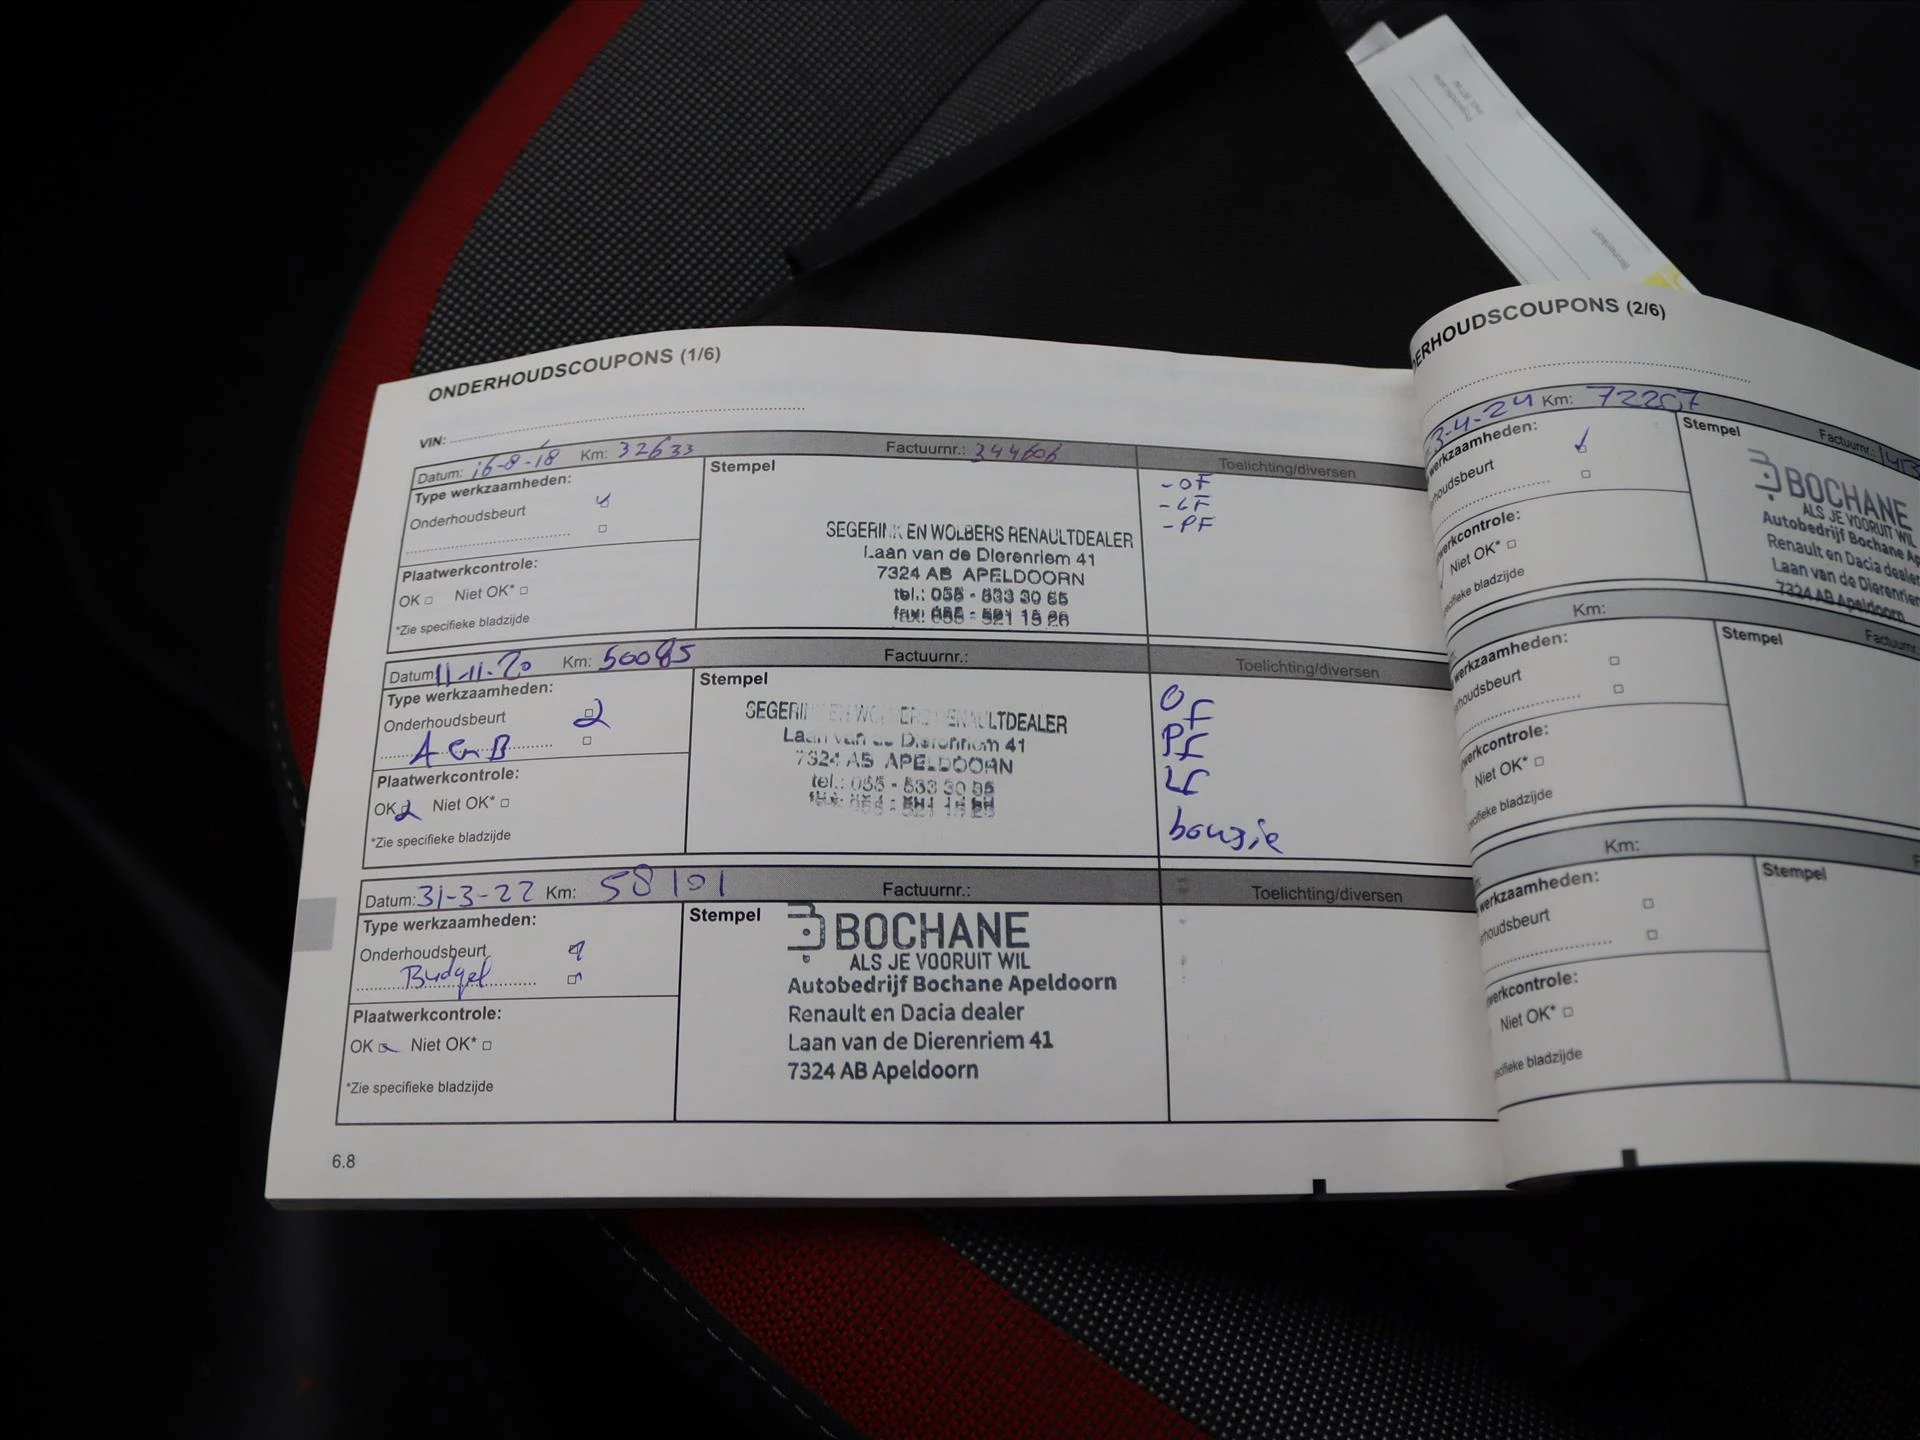 ONDERHOUDSCOUPONS (1/6)
VIN:
Datum: 16-8-18 Km: 32633 Factuurnr.: 344606 Toelichting/diversen
Type werkzaamheden:
Onderhoudsbeurt
Plaatwerkcontrole:
OK Niet OK*
*Zie specifieke bladzijde
Stempel
SEGERINK EN WOLBERS RENAULTDEALER
Laan van de Dierenriem 41
7324 AB APELDOORN
tel.: 055 - 533 30 65
fax: 055 - 521 15 26
- OF
- LF
- PF
Datum: 11-11-20 Km: 50085 Factuurnr.: Toelichting/diversen
Type werkzaamheden:
Onderhoudsbeurt
A en B
Plaatwerkcontrole:
OK Niet OK*
*Zie specifieke bladzijde
Stempel
SEGERINK EN WOLBERS RENAULTDEALER
Laan van de Dierenriem 41
7324 AB APELDOORN
tel.: 055 - 533 30 65
OF
PF
LF
bougie
Datum: 31-3-22 Km: 58101 Factuurnr.: Toelichting/diversen
Type werkzaamheden:
Onderhoudsbeurt
Budget
Plaatwerkcontrole:
OK Niet OK*
*Zie specifieke bladzijde
Stempel
BOCHANE
ALS JE VOORUIT WIL
Autobedrijf Bochane Apeldoorn
Renault en Dacia dealer
Laan van de Dierenriem 41
7324 AB Apeldoorn
6.8
DERHOUDSCOUPONS (2/6)
3-4-24 Km: 72207 Factuurnr.:
werkzaamheden:
houdsbeurt
werkcontrole:
Niet OK*
specifieke bladzijde
Stempel
BOCHANE
ALS JE VOORUIT WIL
Autobedrijf Bochane
Renault en Dacia dealer
Laan van de Dierenriem
7324 AB Apeldoorn
Km: Factuurnr.:
werkzaamheden:
houdsbeurt
werkcontrole:
Niet OK*
specifieke bladzijde
Stempel
Km:
werkzaamheden:
houdsbeurt
werkcontrole:
Niet OK*
specifieke bladzijde
Stempel